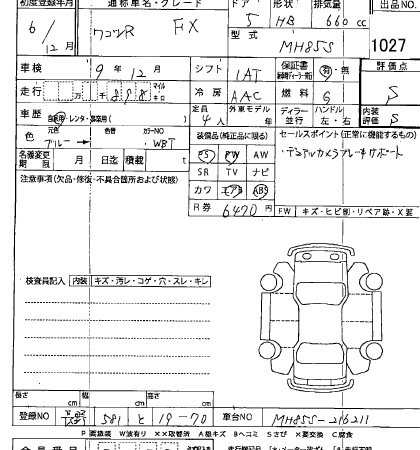 初度登録年月 通称車名・グレード ドア 形状 排気量 出品NO.
6/12月 ワゴンR FX 5 HB 660cc
型式 MH85S 1027
車検 9年12月 シフト 1AT 保証書 有・無 評価点
走行 万 千 898 マイル キロ 冷房 AAC 燃料 G S
車歴 自家用・レンタ・ 定員 4人 外車モデル 年 ディーラー 並行 ハンドル 左・右 内装評価 S
色 元色 ブルー 色替 カラーNO WBT 装備品(純正品に限る) セールスポイント(正常に機能するもの)
名義変更期限 月 日迄 積載 t PS PW AW デュアルカメラブレーキサポート
注意事項(欠品・修復・不具合箇所および状態) SR TV ナビ
カワ エアB ABS
R券 6470円 FW キズ・ヒビ割・リペア跡・X要
検査員記入 内装 キズ・汚レ・コゲ・穴・スレ・キレ
長さ cm 幅 cm 高さ cm
登録NO 581 と 19-70 車台NO MH85S-216211
P要塗装 W波有り XX取替済 A線キズ Bヘコミ Sさび X要交換 C腐食
会員番号